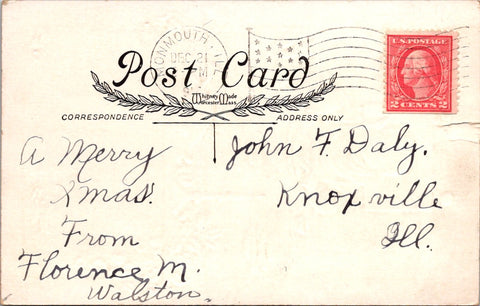 MONMOUTH, ILL.
DEC 21
U.S. POSTAGE
2 CENTS 2
Post Card
Whitney Made
Worcester Mass
CORRESPONDENCE
ADDRESS ONLY
A Merry
Xmas.
From
Florence M.
Walston.
John F. Daly.
Knoxville
Ill.